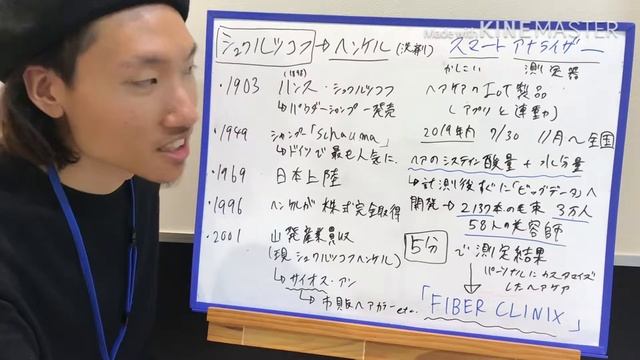 Made with KINEMASTER
シュワルツコフ → ヘンケル (洗剤)
・1903 (1898) ハンス・シュワルツコフ
↳パウダーシャンプー発売
・1949 シャンプー「Schauma」
↳ドイツで最も人気に.
・1969 日本上陸
・1996 ヘンケルが株式完全取得
・2001 山発産業買収
(現 シュワルツコフヘンケル)
↳サイオス・アン
↳市販ヘアカラー etc.
スマートアナライザー
かしこい 測定器
ヘアケアのIoT製品
(アプリと連動)
2019年内 7/30 11月〜全国
ヘアのシステイン酸量+水分量
↳計測後すぐに「ビッグデータ」へ
開発→2137本の毛束 3万人
58人の美容師
5分 で測定結果
パーソナルにカスタマイズ
したヘアケア
「FIBER CLINIX」